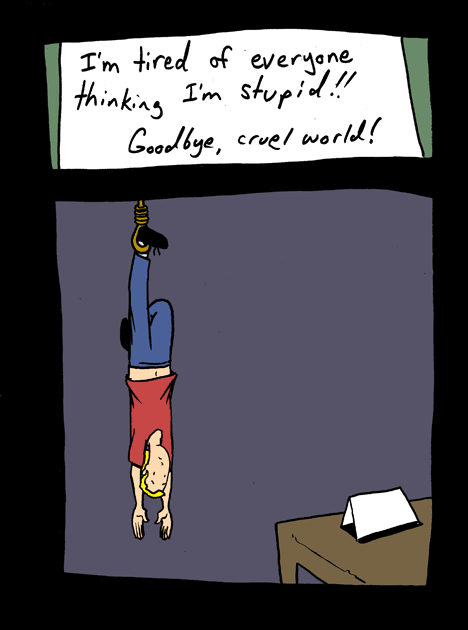 I'm tired of everyone
thinking I'm stupid!!
Goodbye, cruel world!